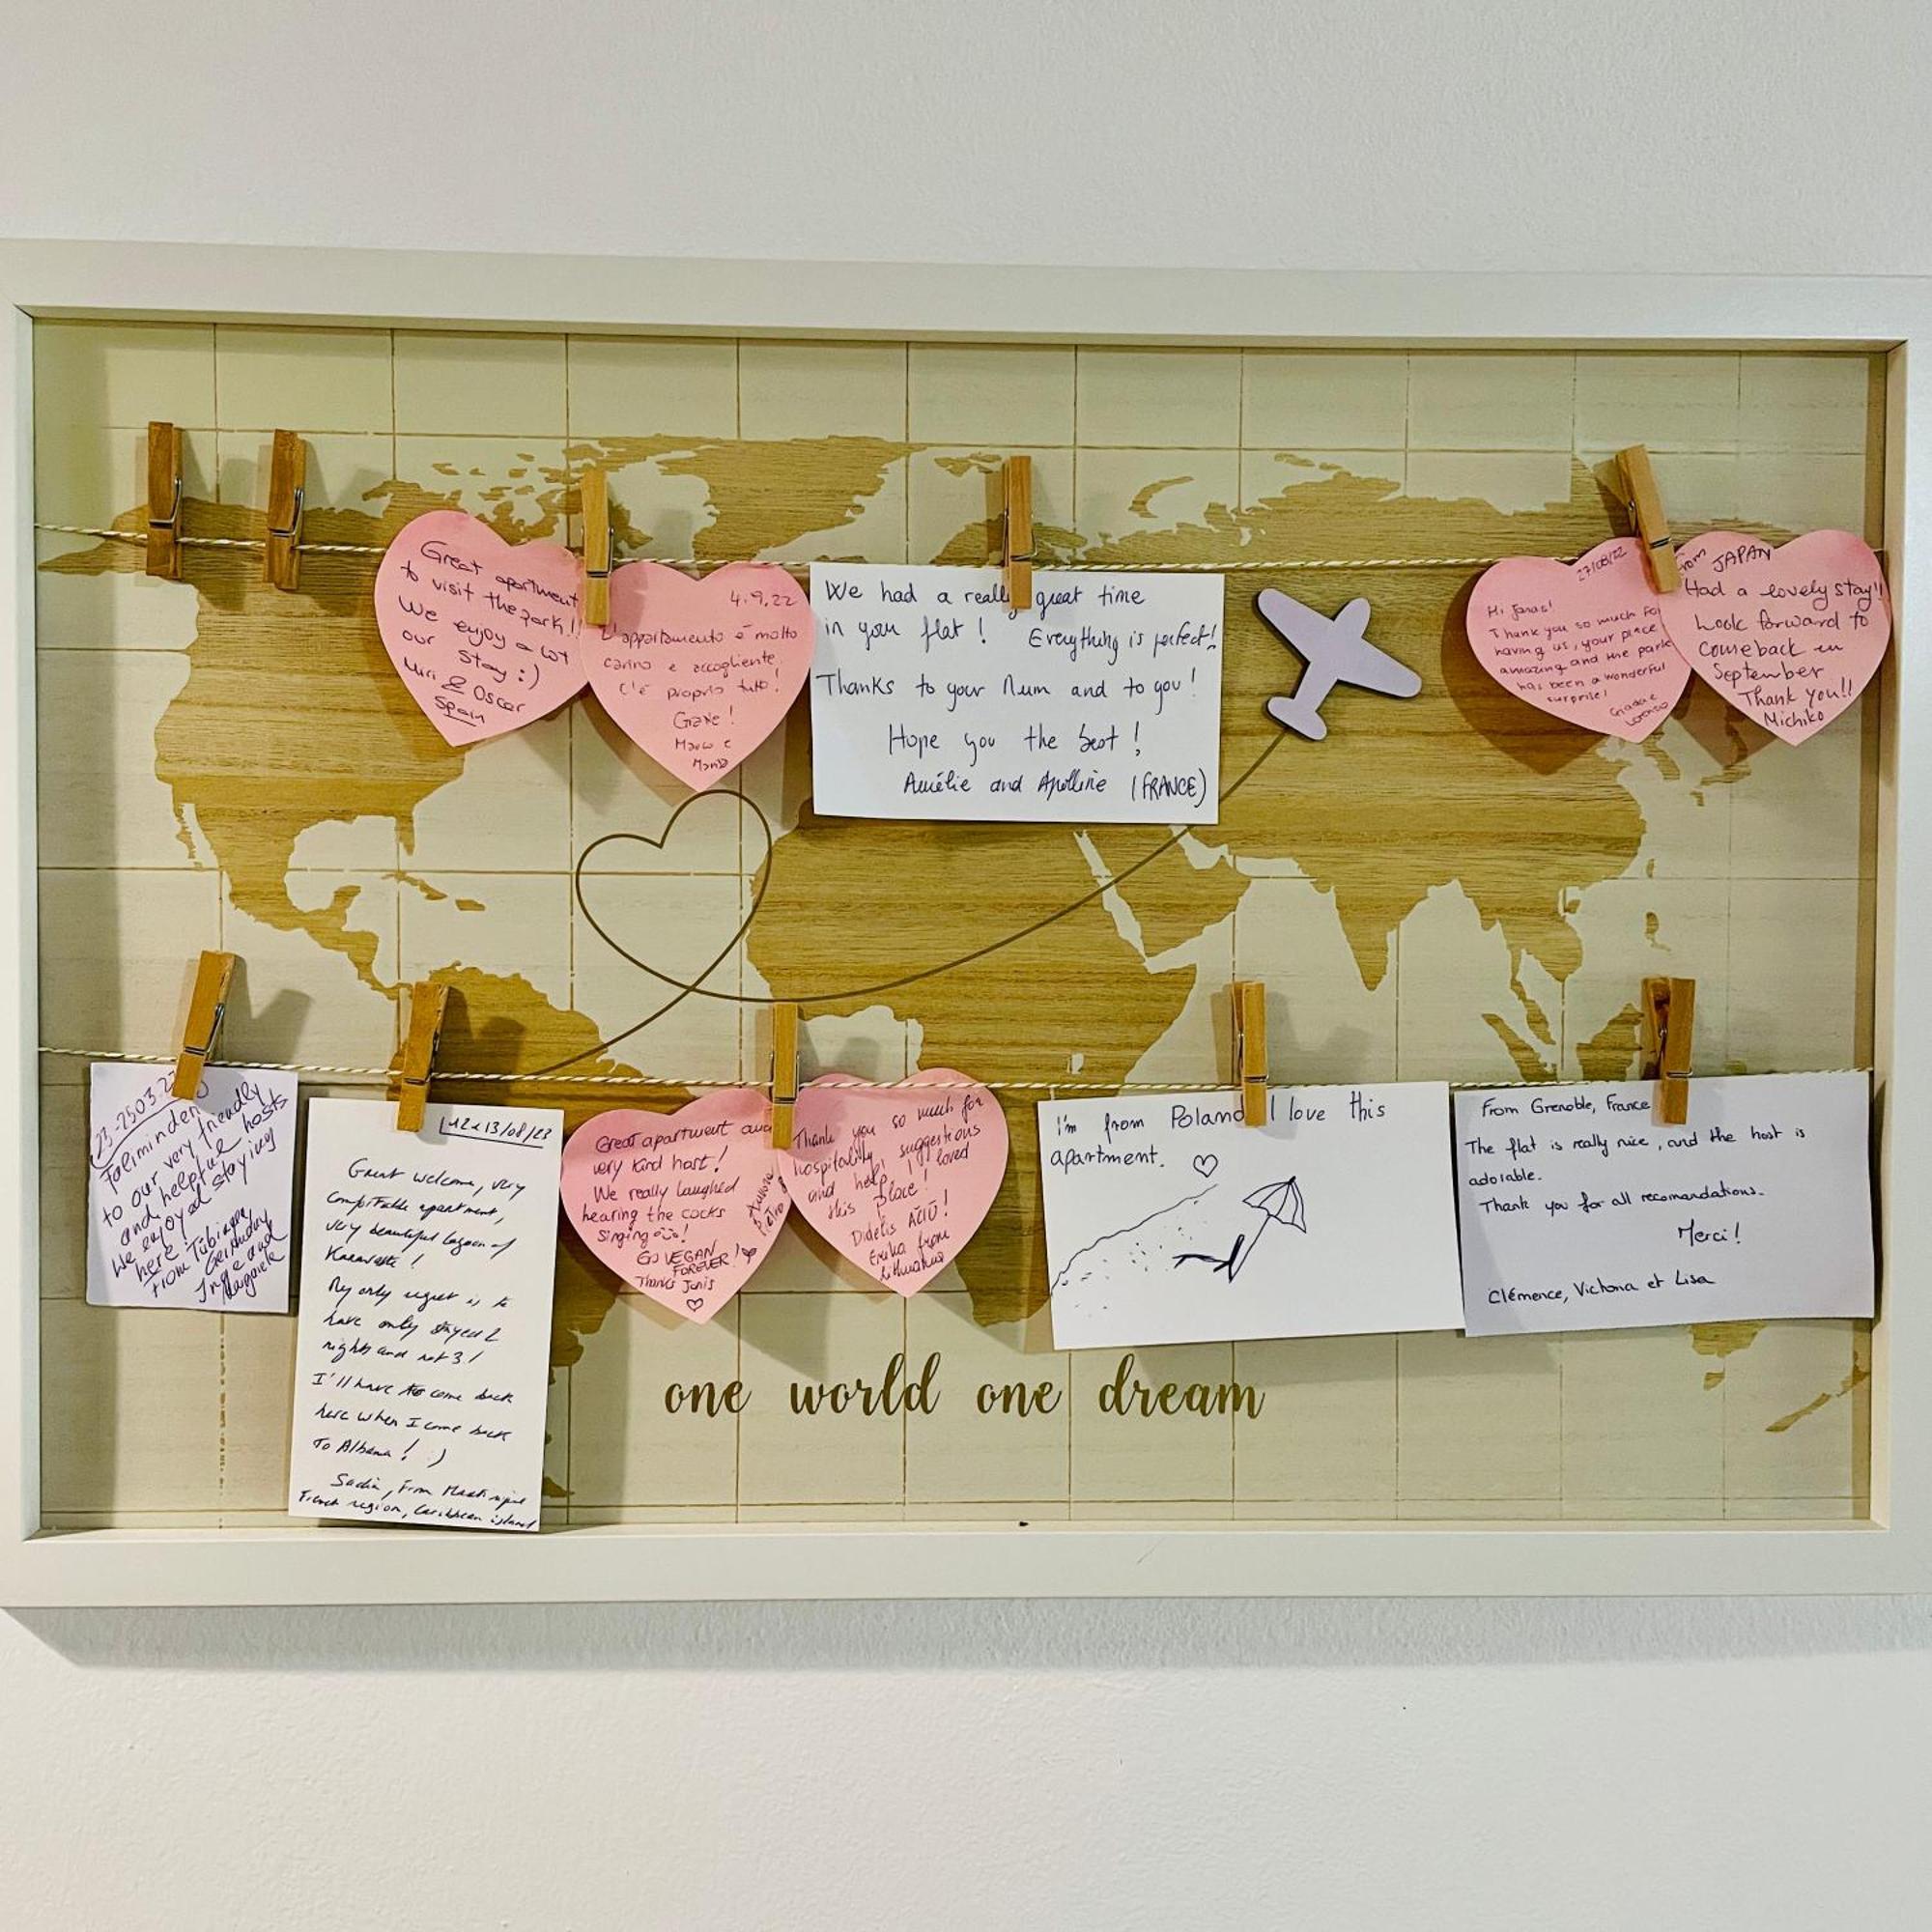 Great apartment
to visit the park!!
We enjoy a lot
our stay :)
Miri & Oscar
Spain
4.9.22
L'appartamento è molto
carino e accogliente.
C'è proprio tutto!
Grazie!
We had a really great time
in your flat! Everything is perfect!
Thanks to your Mum and to you!
Hope you the best!
Amélie and Apolline (FRANCE)
27/08/22
Hi Jonas!
Thank you so much for
having us, your place
amazing and the park
has been a wonderful
surprise!
Giada e
Lorenzo
From JAPAN
Had a lovely stay!!
Look forward to
come back in
September
Thank you!!
Michiko
Faliminderit
to our very friendly
and helpful hosts
We enjoyed staying
here!
From Tübingen
Germany
Inge and
Margarete
12 - 13/08/23
Great welcome, very
comfortable apartment,
very beautiful lagoon of
Karavasta!
My only regret is to
have only stayed 2
nights and not 3!
I'll have to come back
here when I come back
To Albania! :)
Sadia, From Martinique
French region, Caribbean island
Great apartment and
very kind host!
We really laughed
hearing the cocks
singing!
GO VEGAN
FOREVER!
Thanks Jonis
Thank you so much for
hospitality, suggestions
and help! I loved
this place!
Didelis AČIŪ!
Erika from
Lithuania
I'm from Poland I love this
apartment.
From Grenoble, France
The flat is really nice, and the host is
adorable.
Thank you for all recomandations.
Merci!
Clémence, Victoria et Lisa
one world one dream